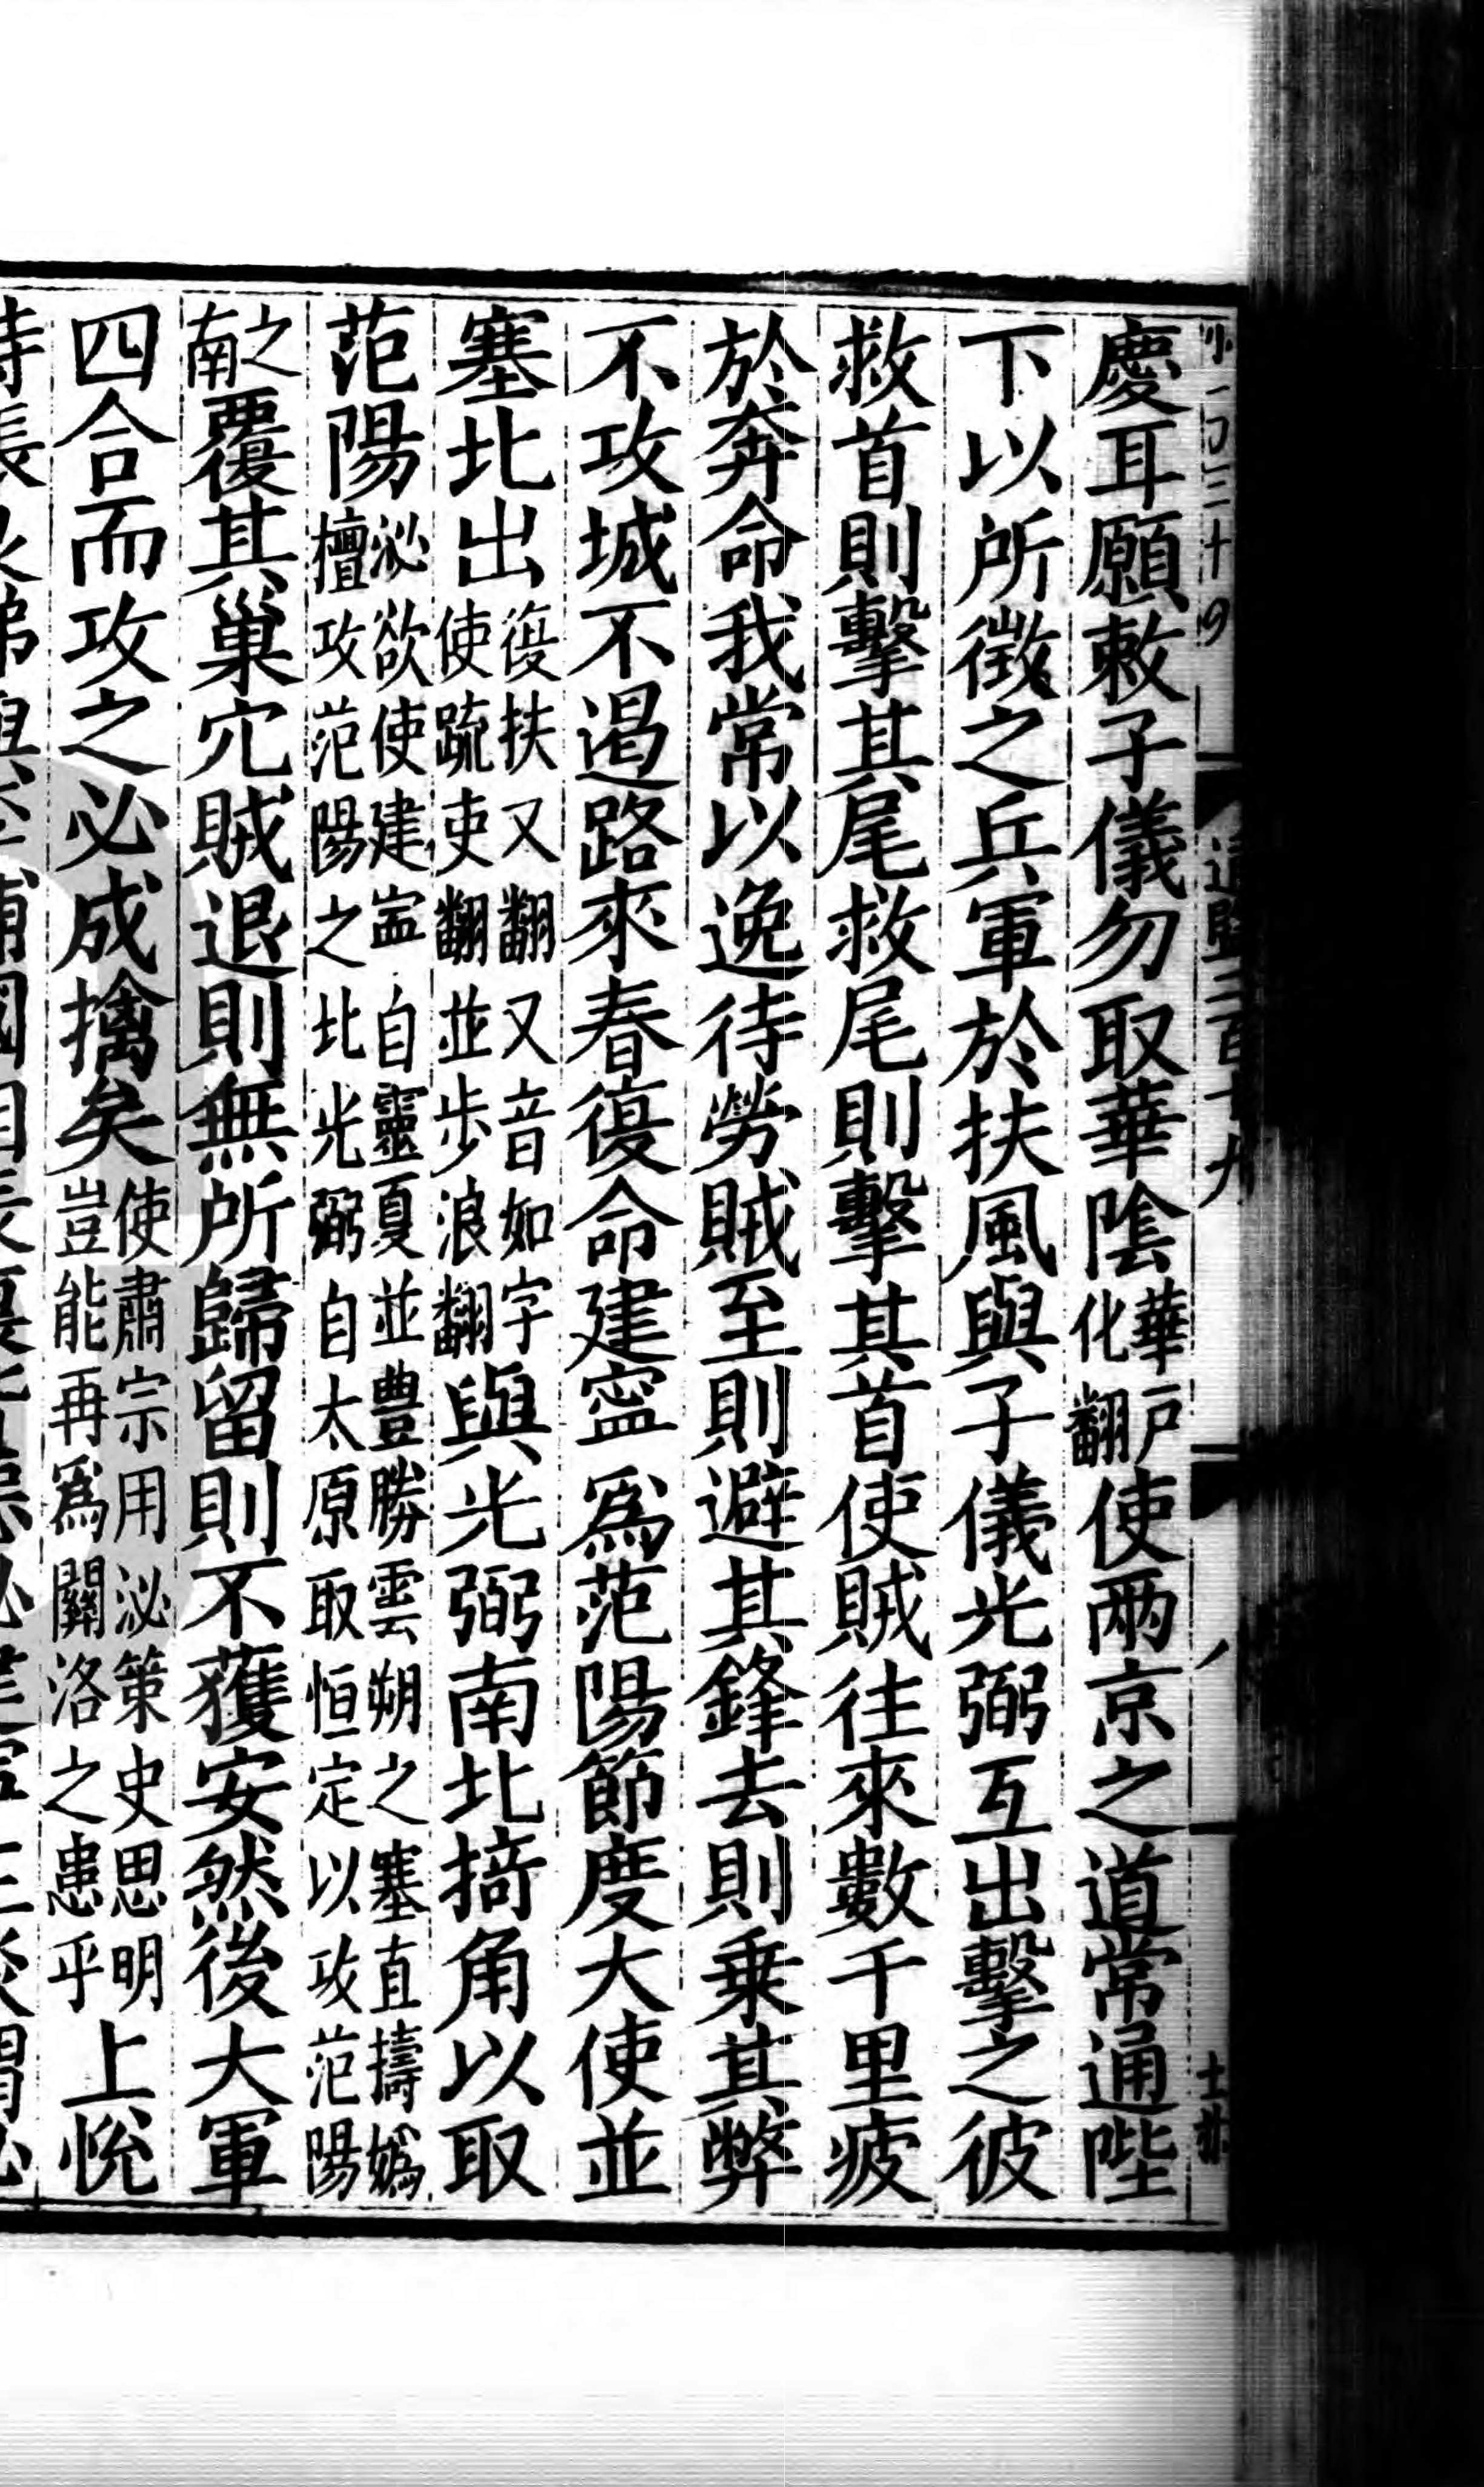 通鑑二百十九
慶耳願敕子儀勿取華陰華戶化翻使兩京之道常通陛
下以所徵之兵軍於扶風與子儀光弼互出擊之彼
救首則擊其尾救尾則擊其首使賊往來數千里疲
於奔命我常以逸待勞賊至則避其鋒去則乗其弊
不攻城不遏路來春復命建寧爲范陽節度大使並
塞北出復扶又翻又音如字使疏吏翻並步浪翻與光弼南北掎角以取
范陽泌欲使建寧自靈夏並豊勝雲朔之塞直擣嬀檀攻范陽之北光弼自太原取恒定以攻范陽
之南覆其巢穴賊退則無所歸留則不獲安然後大軍
四合而攻之必成擒矣使肅宗用泌策史思明豈能再爲關洛之患乎上悅